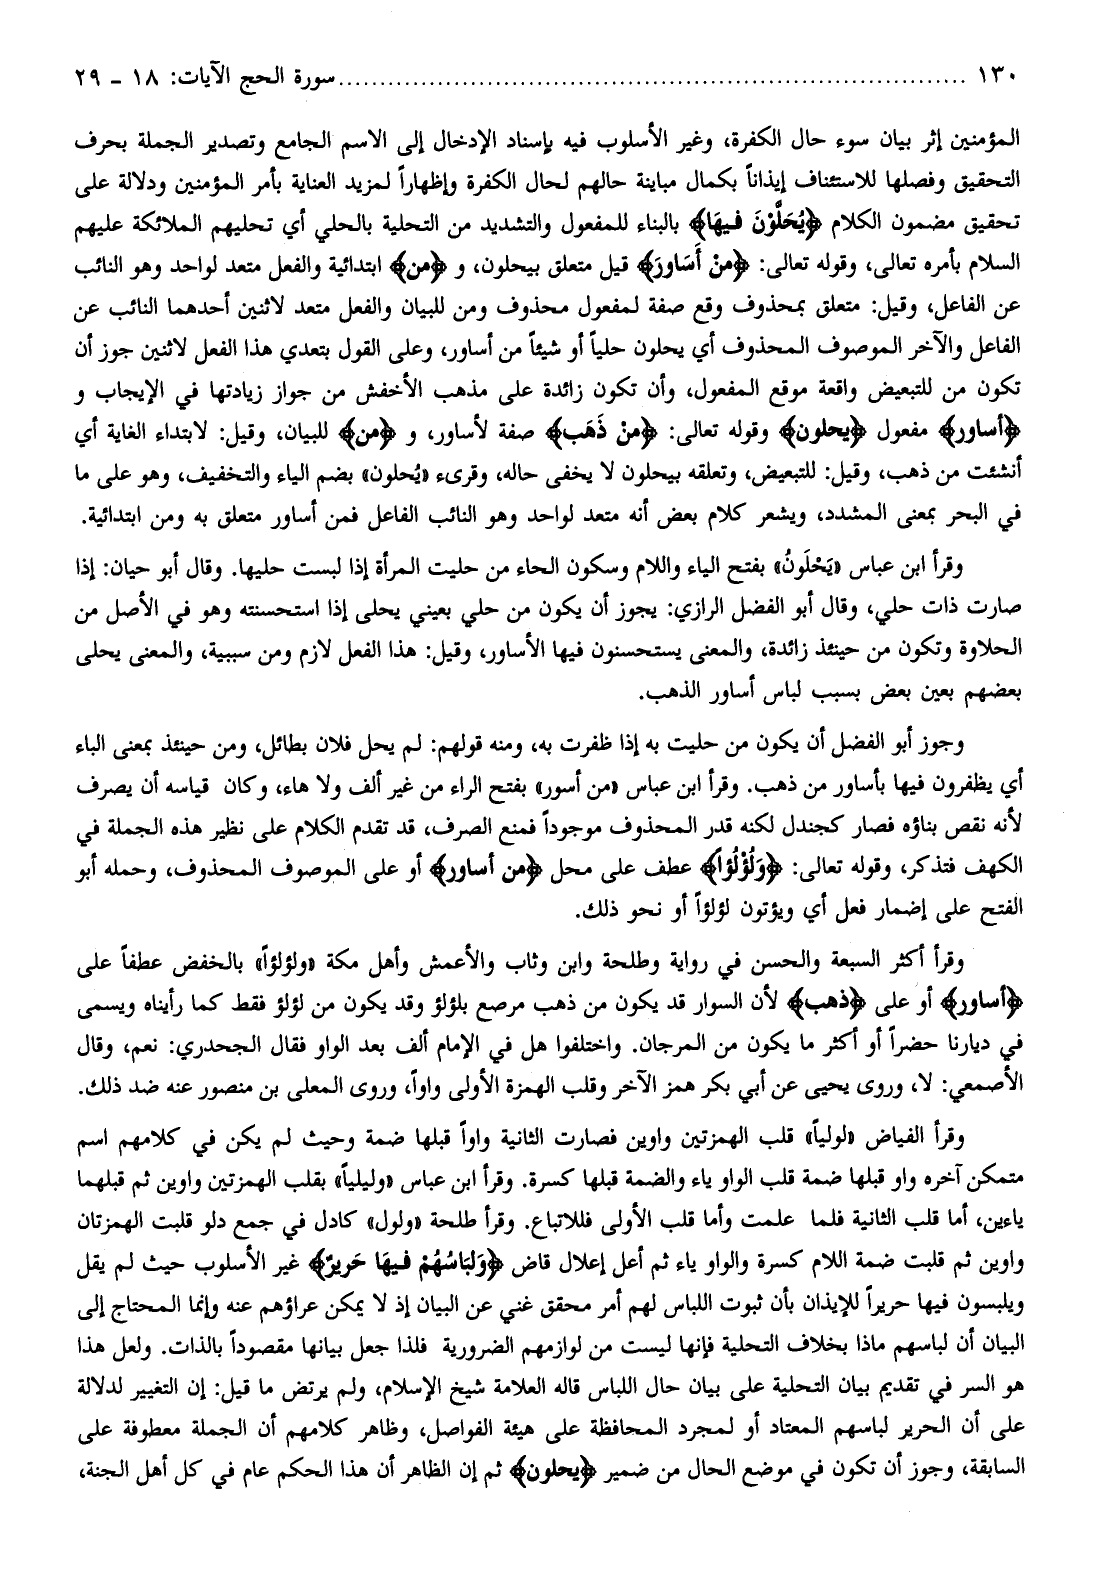 ١٣٠ ........................................................................... سورة الحج الآيات: ١٨ ـ ٢٩
المؤمنين إثر بيان سوء حال الكفرة، وغير الأسلوب فيه بإسناد الإدخال إلى الاسم الجامع وتصدير الجملة بحرف
التحقيق وفصلها للاستئناف إيذاناً بكمال مباينة حالهم لحال الكفرة وإظهاراً لمزيد العناية بأمر المؤمنين ودلالة على
تحقيق مضمون الكلام ﴿يُحَلَّوْنَ فيهَا﴾ بالبناء للمفعول والتشديد من التحلية بالحلي أي تحليهم الملائكة عليهم
السلام بأمره تعالى، وقوله تعالى: ﴿منْ أَسَاورَ﴾ قيل متعلق بيحلون، و ﴿من﴾ ابتدائية والفعل متعد لواحد وهو النائب
عن الفاعل، وقيل: متعلق بمحذوف وقع صفة لمفعول محذوف ومن للبيان والفعل متعد لاثنين أحدهما النائب عن
الفاعل والآخر الموصوف المحذوف أي يحلون حلياً أو شيئاً من أساور، وعلى القول بتعدي هذا الفعل لاثنين جوز أن
تكون من للتبعيض واقعة موقع المفعول، وأن تكون زائدة على مذهب الأخفش من جواز زيادتها في الإيجاب و
﴿أساور﴾ مفعول ﴿يحلون﴾ وقوله تعالى: ﴿منْ ذَهَب﴾ صفة لأساور، و ﴿من﴾ للبيان، وقيل: لابتداء الغاية أي
أنشئت من ذهب، وقيل: للتبعيض، وتعلقه بيحلون لا يخفى حاله، وقرىء «يُحلون» بضم الياء والتخفيف، وهو على ما
في البحر بمعنى المشدد، ويشعر كلام بعض أنه متعد لواحد وهو النائب الفاعل فمن أساور متعلق به ومن ابتدائية.
وقرأ ابن عباس «يَحْلَونُ» بفتح الياء واللام وسكون الحاء من حليت المرأة إذا لبست حليها. وقال أبو حيان: إذا
صارت ذات حلي، وقال أبو الفضل الرازي: يجوز أن يكون من حلي بعيني يحلى إذا استحسنته وهو في الأصل من
الحلاوة وتكون من حينئذ زائدة، والمعنى يستحسنون فيها الأساور، وقيل: هذا الفعل لازم ومن سببية، والمعنى يحلى
بعضهم بعين بعض بسبب لباس أساور الذهب.
وجوز أبو الفضل أن يكون من حليت به إذا ظفرت به، ومنه قولهم: لم يحل فلان بطائل، ومن حينئذ بمعنى الباء
أي يظفرون فيها بأساور من ذهب. وقرأ ابن عباس «من أسور» بفتح الراء من غير ألف ولا هاء، وكان قياسه أن يصرف
لأنه نقص بناؤه فصار كجندل لكنه قدر المحذوف موجوداً فمنع الصرف، قد تقدم الكلام على نظير هذه الجملة في
الكهف فتذكر، وقوله تعالى: ﴿وَلُؤْلُؤاً﴾ عطف على محل ﴿من أساور﴾ أو على الموصوف المحذوف، وحمله أبو
الفتح على إضمار فعل أي ويؤتون لؤلؤاً أو نحو ذلك.
وقرأ أكثر السبعة والحسن في رواية وطلحة وابن وثاب والأعمش وأهل مكة «ولؤلؤاً» بالخفض عطفاً على
﴿أساور﴾ أو على ﴿ذهب﴾ لأن السوار قد يكون من ذهب مرصع بلؤلؤ وقد يكون من لؤلؤ فقط كما رأيناه ويسمى
في ديارنا حضراً أو أكثر ما يكون من المرجان. واختلفوا هل في الإمام ألف بعد الواو فقال الجحدري: نعم، وقال
الأصمعي: لا، وروى يحيى عن أبي بكر همز الآخر وقلب الهمزة الأولى واواً، وروى المعلى بن منصور عنه ضد ذلك.
وقرأ الفياض «لولياً» قلب الهمزتين واوين فصارت الثانية واواً قبلها ضمة وحيث لم يكن في كلامهم اسم
متمكن آخره واو قبلها ضمة قلب الواو ياء والضمة قبلها كسرة. وقرأ ابن عباس «وليلياً» بقلب الهمزتين واوين ثم قبلهما
ياءين، أما قلب الثانية فلما علمت وأما قلب الأولى فللاتباع. وقرأ طلحة «ولول» كادل في جمع دلو قلبت الهمزتان
واوين ثم قلبت ضمة اللام كسرة والواو ياء ثم أعل إعلال قاض ﴿وَلبَاسُهُمْ فيهَا حَريرٌ﴾ غير الأسلوب حيث لم يقل
ويلبسون فيها حريراً للإيذان بأن ثبوت اللباس لهم أمر محقق غني عن البيان إذ لا يمكن عراؤهم عنه وإنما المحتاج إلى
البيان أن لباسهم ماذا بخلاف التحلية فإنها ليست من لوازمهم الضرورية فلذا جعل بيانها مقصوداً بالذات. ولعل هذا
هو السر في تقديم بيان التحلية على بيان حال اللباس قاله العلامة شيخ الإسلام، ولم يرتض ما قيل: إن التغيير لدلالة
على أن الحرير لباسهم المعتاد أو لمجرد المحافظة على هيئة الفواصل، وظاهر كلامهم أن الجملة معطوفة على
السابقة، وجوز أن تكون في موضع الحال من ضمير ﴿يحلون﴾ ثم إن الظاهر أن هذا الحكم عام في كل أهل الجنة،